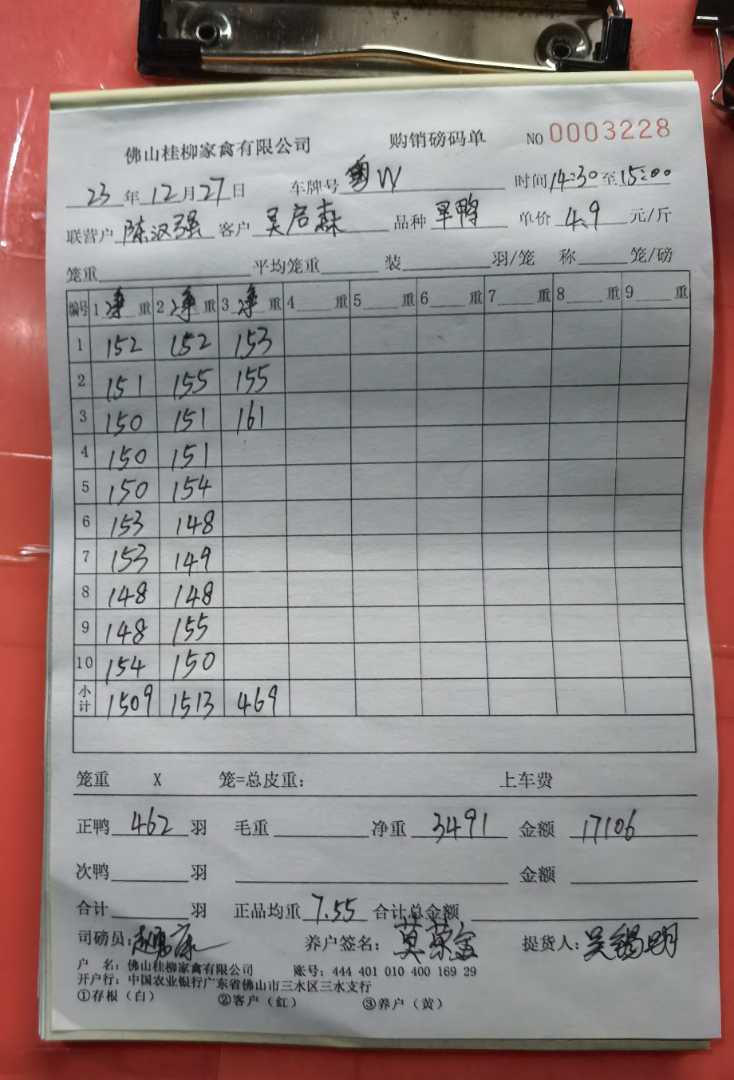 佛山桂柳家禽有限公司 购销磅码单 NO 0003228
23年12月27日 车牌号 粤W 时间14:30至15:00
联营户 陈汉强 客户 吴启森 品种 旱鸭 单价 4.9 元/斤
笼重 平均笼重 装 羽/笼 称 笼/磅
编号 1净重 2净重 3净重 4 重 5 重 6 重 7 重 8 重 9 重
1 152 152 153
2 151 155 155
3 150 151 161
4 150 151
5 150 154
6 153 148
7 153 149
8 148 148
9 148 155
10 154 150
小计 1509 1513 469
笼重 X 笼=总皮重: 上车费
正鸭 462 羽 毛重 净重 3491 金额 17106
次鸭 羽 金额
合计 羽 正品均重 7.55 合计总金额
司磅员: 养户签名: 莫荣金 提货人: 吴锡明
户 名: 佛山桂柳家禽有限公司 账号: 444 401 010 400 169 29
开户行: 中国农业银行广东省佛山市三水区三水支行
①存根(白) ②客户(红) ③养户(黄)